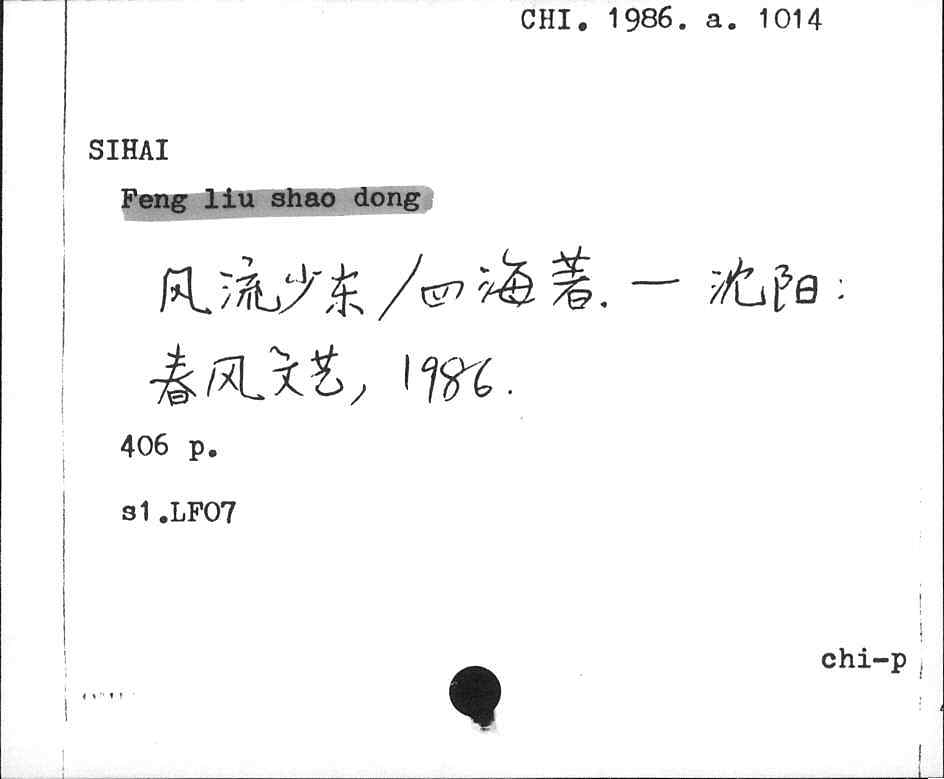 CHI. 1986. a. 1014
SIHAI
Feng liu shao dong
风流少东/四海著. — 沈阳:
春风文艺, 1986.
406 p.
s1.LF07
chi-p